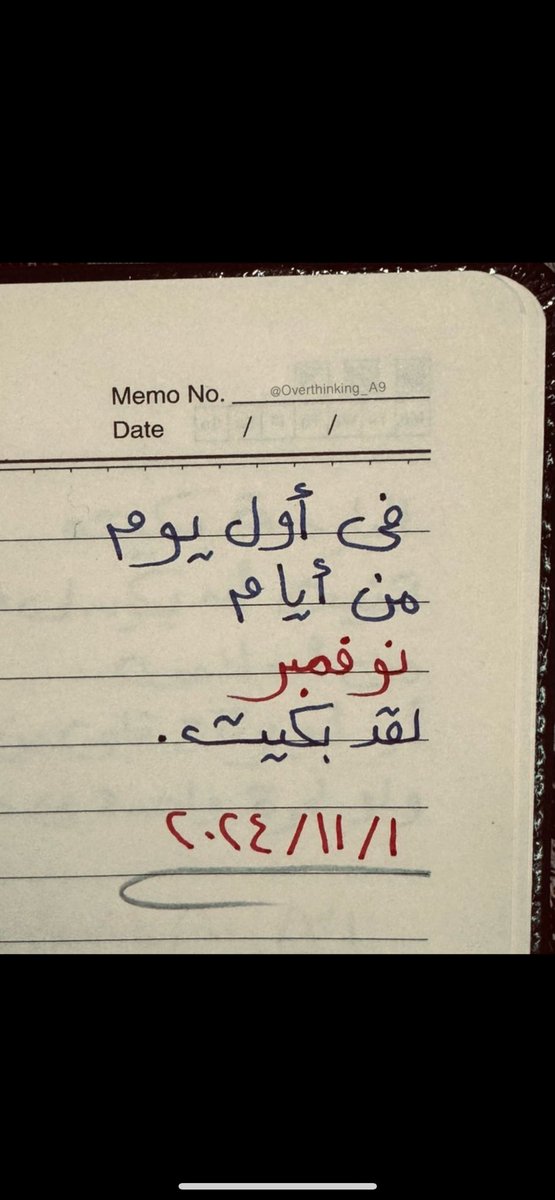 Memo No. @Overthinking_A9
Date / /
فى أول يوم
من أيام
نوفمبر
لقد بكيت.
٢٠٢٤/١١/١